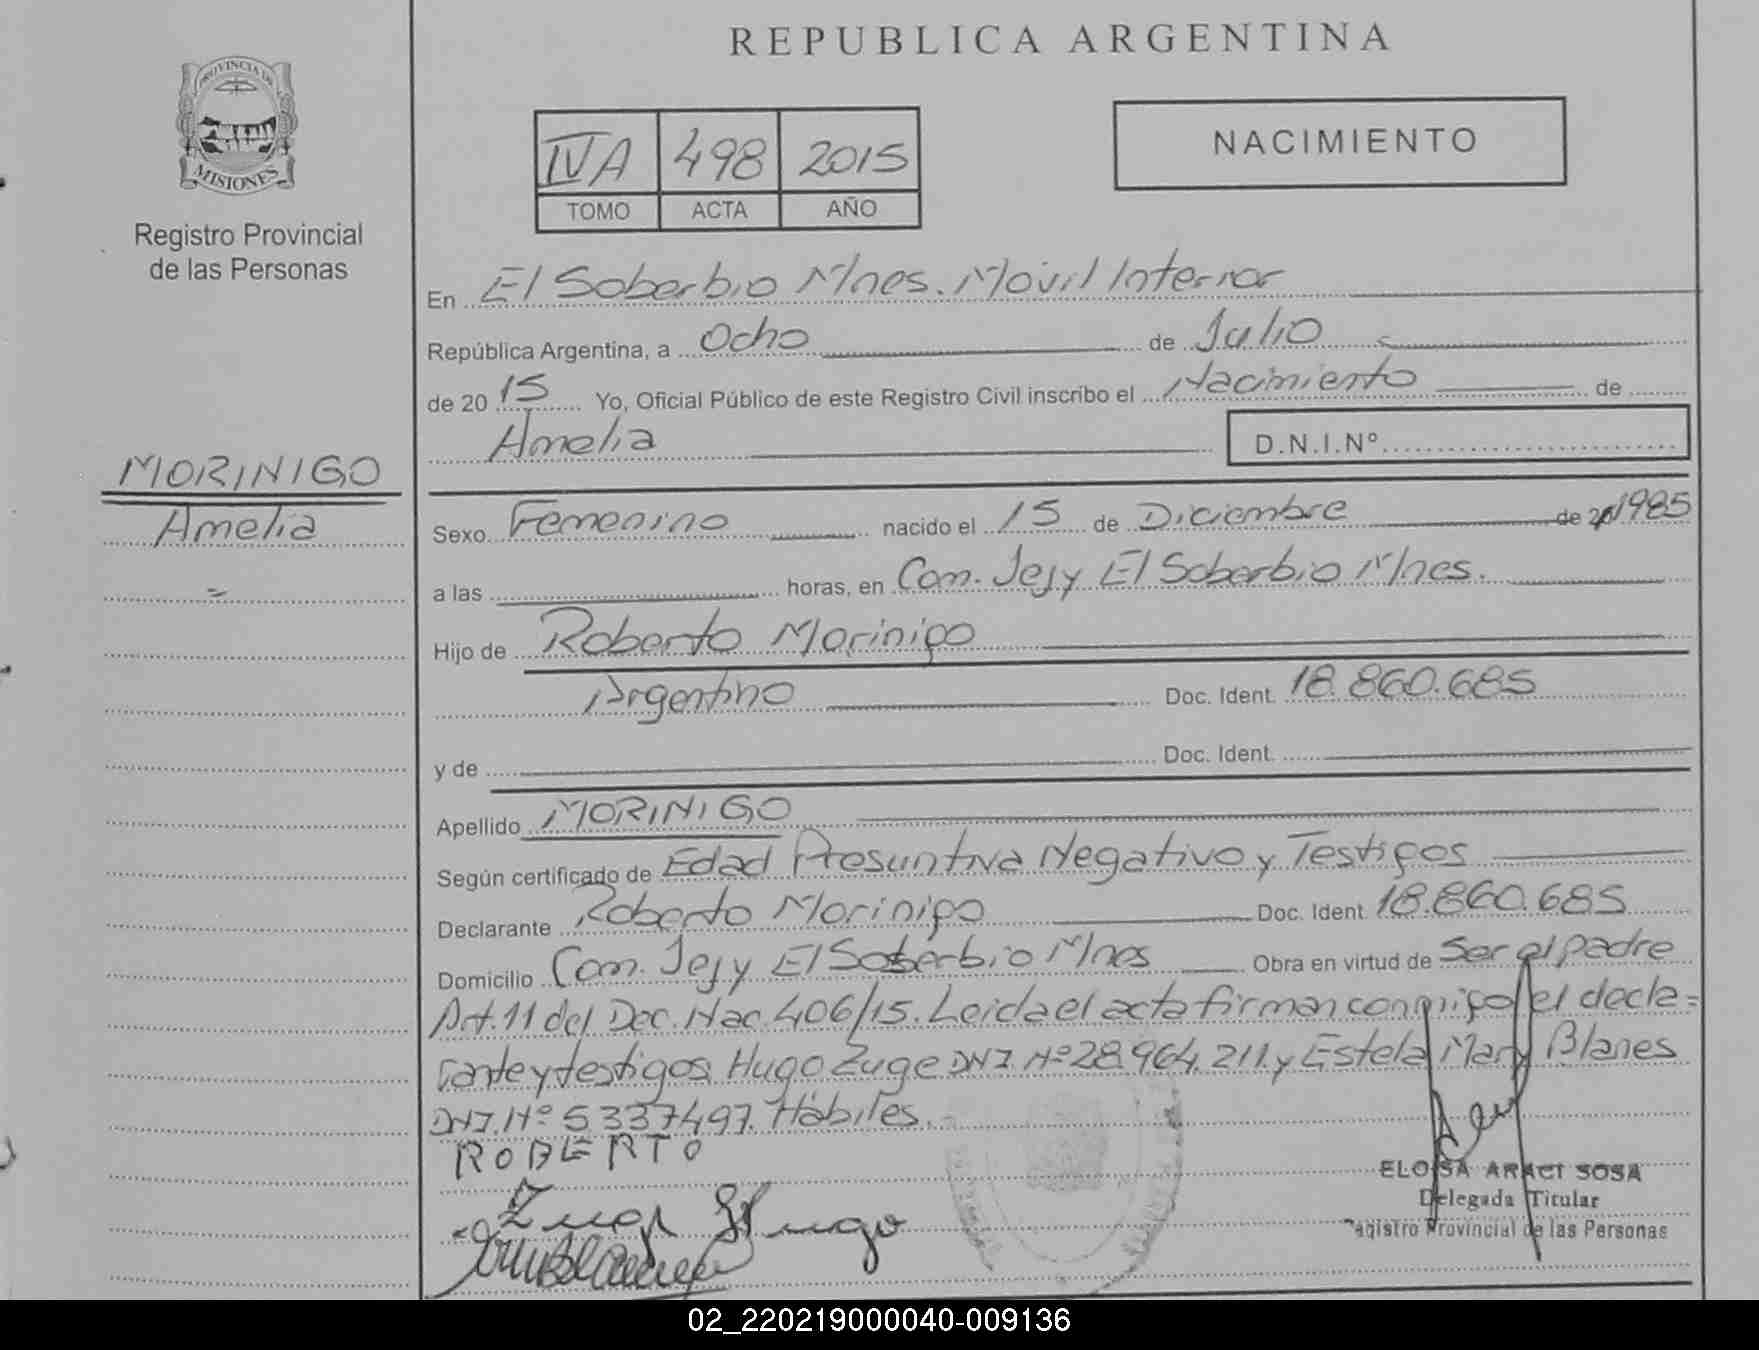 REPUBLICA ARGENTINA
PROVINCIA DE
MISIONES
Registro Provincial
de las Personas
IVA 498 2015
TOMO ACTA AÑO
NACIMIENTO
En El Soberbio Mnes. Móvil Interior
República Argentina, a Ocho de Julio
de 20 15 Yo, Oficial Público de este Registro Civil inscribo el Nacimiento de
Amelia D.N.I.Nº
MORINIGO
Amelia
Sexo Femenino nacido el 15 de Diciembre de 1985
a las horas, en Com. Jejy El Soberbio Mnes.
Hijo de Roberto Morinigo
Argentino Doc. Ident. 18.860.685
y de Doc. Ident.
Apellido MORINIGO
Según certificado de Edad Presuntiva Negativo y Testigos
Declarante Roberto Morinigo Doc. Ident 18.860.685
Domicilio Com. Jejy El Soberbio Mnes Obra en virtud de Ser el padre
Art. 11 del Dec. Nac. 406/15. Leida el acta firman conmigo el decla=
rante y testigos Hugo Zuge DNI. Nº 28.964.211. y Estela Mary Blanes
DNI. Nº 5337497. Hábiles.
ROBERTO
Zuge Hugo
ELOISA ARACI SOSA
Delegada Titular
Registro Provincial de las Personas
02_220219000040-009136